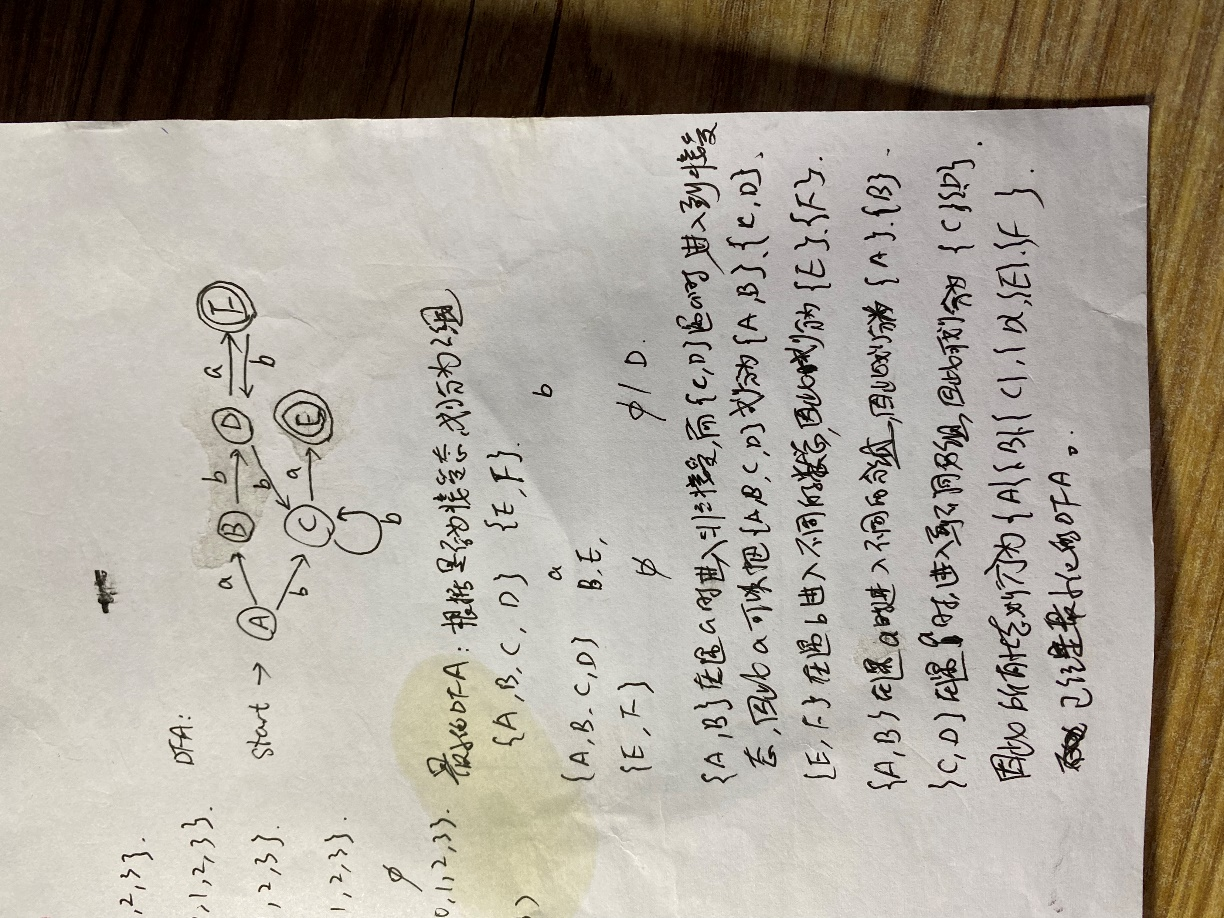 ,2,3}.
,1,2,3}.
,2,3}.
1,2,3}.
φ
0,1,2,3}.
)
DFA:
Start →
A
a
b
B
b
D
a
b
F
b
C
a
E
b
最小化DFA：根据是否为接受态,划分为2组
{A,B,C,D} {E,F}.
a b
{A,B,C,D} B,E,
{E,F} φ φ/D.
{A,B}在遇a时进入非接受,而{C,D}遇a时进入到接受
态,因此a可以把{A,B,C,D}划分为{A,B}、{C,D}、
{E,F}在遇b进入不同的状态,因此划分为{E}.{F}.
{A,B}在遇a时进入不同的分组,因此划分为{A}.{B}
{C,D}在遇 时,进入到不同分组,因此划分为{C}{D}.
因此所有状态划分为{A}{B}{C},{D},{E}.{F}.
已经是最小化的DFA。